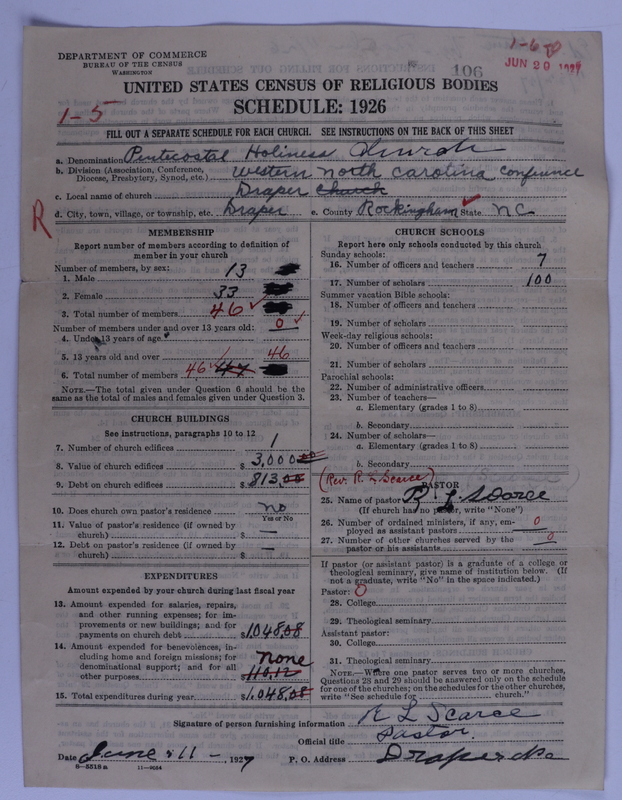 1-6
106
JUN 20 1927
DEPARTMENT OF COMMERCE
BUREAU OF THE CENSUS
WASHINGTON
UNITED STATES CENSUS OF RELIGIOUS BODIES
SCHEDULE: 1926
1-5
FILL OUT A SEPARATE SCHEDULE FOR EACH CHURCH. SEE INSTRUCTIONS ON THE BACK OF THIS SHEET
a. Denomination Pentecostal Holiness Church
b. Division (Association, Conference, Diocese, Presbytery, Synod, etc.) Western North Carolina Conference
c. Local name of church Draper Church
d. City, town, village, or township, etc. Draper e. County Rockingham State NC
R
MEMBERSHIP
Report number of members according to definition of
member in your church
Number of members, by sex:
1. Male 13
2. Female 33
3. Total number of members 46
Number of members under and over 13 years old:
4. Under 13 years of age 0
5. 13 years old and over 46
6. Total number of members 46
NOTE.—The total given under Question 6 should be the
same as the total of males and females given under Question 3.
CHURCH BUILDINGS
See instructions, paragraphs 10 to 12
7. Number of church edifices 1
8. Value of church edifices $3,000.00
9. Debt on church edifices $813.00
10. Does church own pastor's residence no
Yes or No
11. Value of pastor's residence (if owned by
church) $ —
12. Debt on pastor's residence (if owned by
church) $ —
EXPENDITURES
Amount expended by your church during last fiscal year
13. Amount expended for salaries, repairs,
and other running expenses; for im-
provements or new buildings; and for
payments on church debt $1,048.08
14. Amount expended for benevolences, in-
cluding home and foreign missions; for
denominational support; and for all none
other purposes 110.12
15. Total expenditures during year $1,048.08
CHURCH SCHOOLS
Report here only schools conducted by this church
Sunday schools:
16. Number of officers and teachers 7
17. Number of scholars 100
Summer vacation Bible schools:
18. Number of officers and teachers
19. Number of scholars
Week-day religious schools:
20. Number of officers and teachers
21. Number of scholars
Parochial schools:
22. Number of administrative officers
23. Number of teachers—
a. Elementary (grades 1 to 8)
b. Secondary
24. Number of scholars—
a. Elementary (grades 1 to 8)
b. Secondary
(Rev. R. L. Scarce)
PASTOR
25. Name of pastor R L Scarce
(If church has no pastor, write "None")
26. Number of ordained ministers, if any, em-
ployed as assistant pastors 0
27. Number of other churches served by the
pastor or his assistants 0
If pastor (or assistant pastor) is a graduate of a college or
theological seminary, give name of institution below. (If
not a graduate, write "No" in the space indicated.)
Pastor: 0
28. College
29. Theological seminary
Assistant pastor:
30. College
31. Theological seminary
NOTE.—Where one pastor serves two or more churches,
Questions 28 and 29 should be answered only on the schedule
for one of the churches; on the schedules for the other churches,
write "See schedule for church."
Signature of person furnishing information R L Scarce
Official title Pastor
Date June 11 -, 1927 P. O. Address Draper
8—5518 a 11—9054